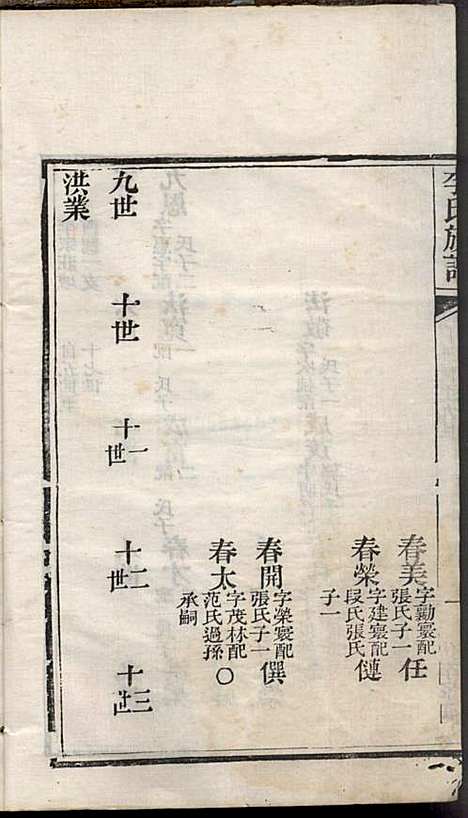 李氏族譜
春美 字勷寰配
張氏子一 任
春榮 字建寰配
段氏張氏
子一 㒓
春開 字榮寰配
張氏子一 僎
春太 字茂林配
范氏過孫
承嗣 〇
九世 十世 十一世 十二世 十三世
洪業